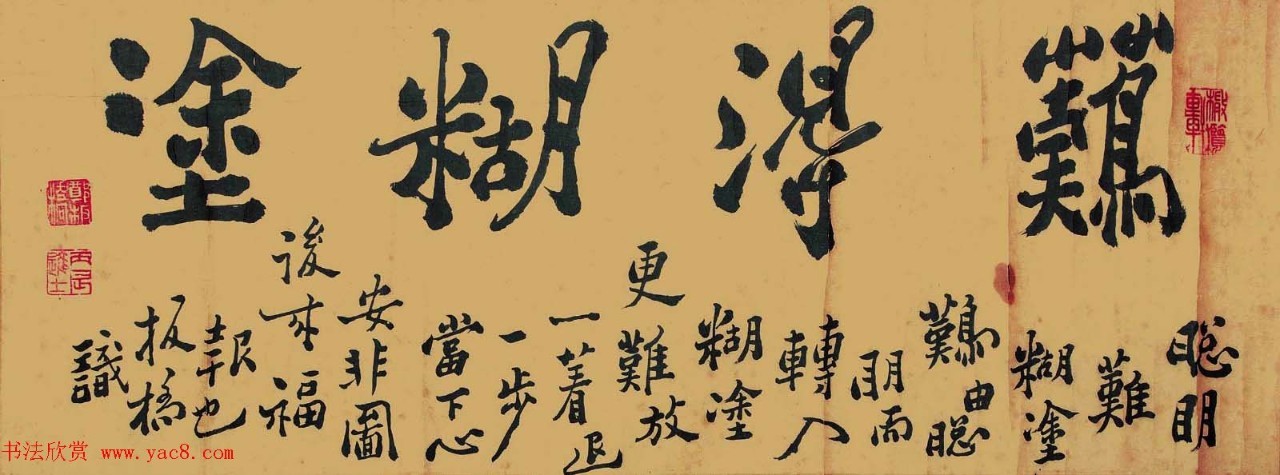 難得糊塗
聰明
難
糊塗
難由聰
明而
轉入
糊塗
更難放
一着退
一步
當下心
安非圖
後來福
報也
板橋
識
橄欖軒
鄭板橋
丙辰進士
书法欣赏 www.yac8.com